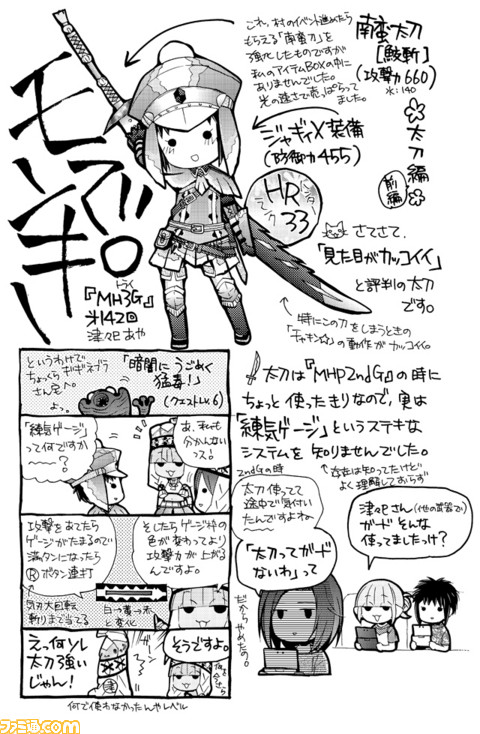 モンでキー
『MH3G』
トライ
第142回
津々巳あや
これ、村のイベント進めたら
もらえる「南蛮刀」を
強化したものですが
私のアイテムBOXの中に
ありませんでした。
光の速さで売っぱらって
ました。
南蛮太刀
【鮫斬】
(攻撃力660)
水:140
太刀編
前編
ジャギィX装備
(防御力455)
HR
33
さてさて、
「見た目がカッコイイ」
と評判の太刀
です。
特にこの刀をしまうときの
「チャキン☆」の動作がカッコイイ。
太刀は『MHP2ndG』の時に
ちょっと使ったきりなので、実は
「練気ゲージ」というステキな
システムを知りませんでした。
存在は知ってたけど
よく理解しておらず
というわけで
ギギネブラ
ちょっくら
さん宅へ。
よっ。
「暗闇にうごめく
猛毒!」
(クエストLv.6)
「練気ゲージ」
って何ですか
〜〜〜?
あ、私も
分かんない
っス!
攻撃をあてたら
ゲージがたまるので
満タンになったら
Rボタン連打
気刃大回転
斬りまで当てる
そしたらゲージ枠の
色が変わってより
攻撃力が上がる
んですよ。
白→黄→赤
と変化
えっ何ソレ
太刀強い
じゃん!
津
そうですよ。
何を今さら
何で使わなかったんやレベル
2ndGの時
太刀使ってて
途中で気付い
たんですよねー
「太刀ってガード
ないわ」って
だからやめたの。
津々巳さん(他の武器で)
ガードそんな
使ってましたっけ?
ファミ通.com